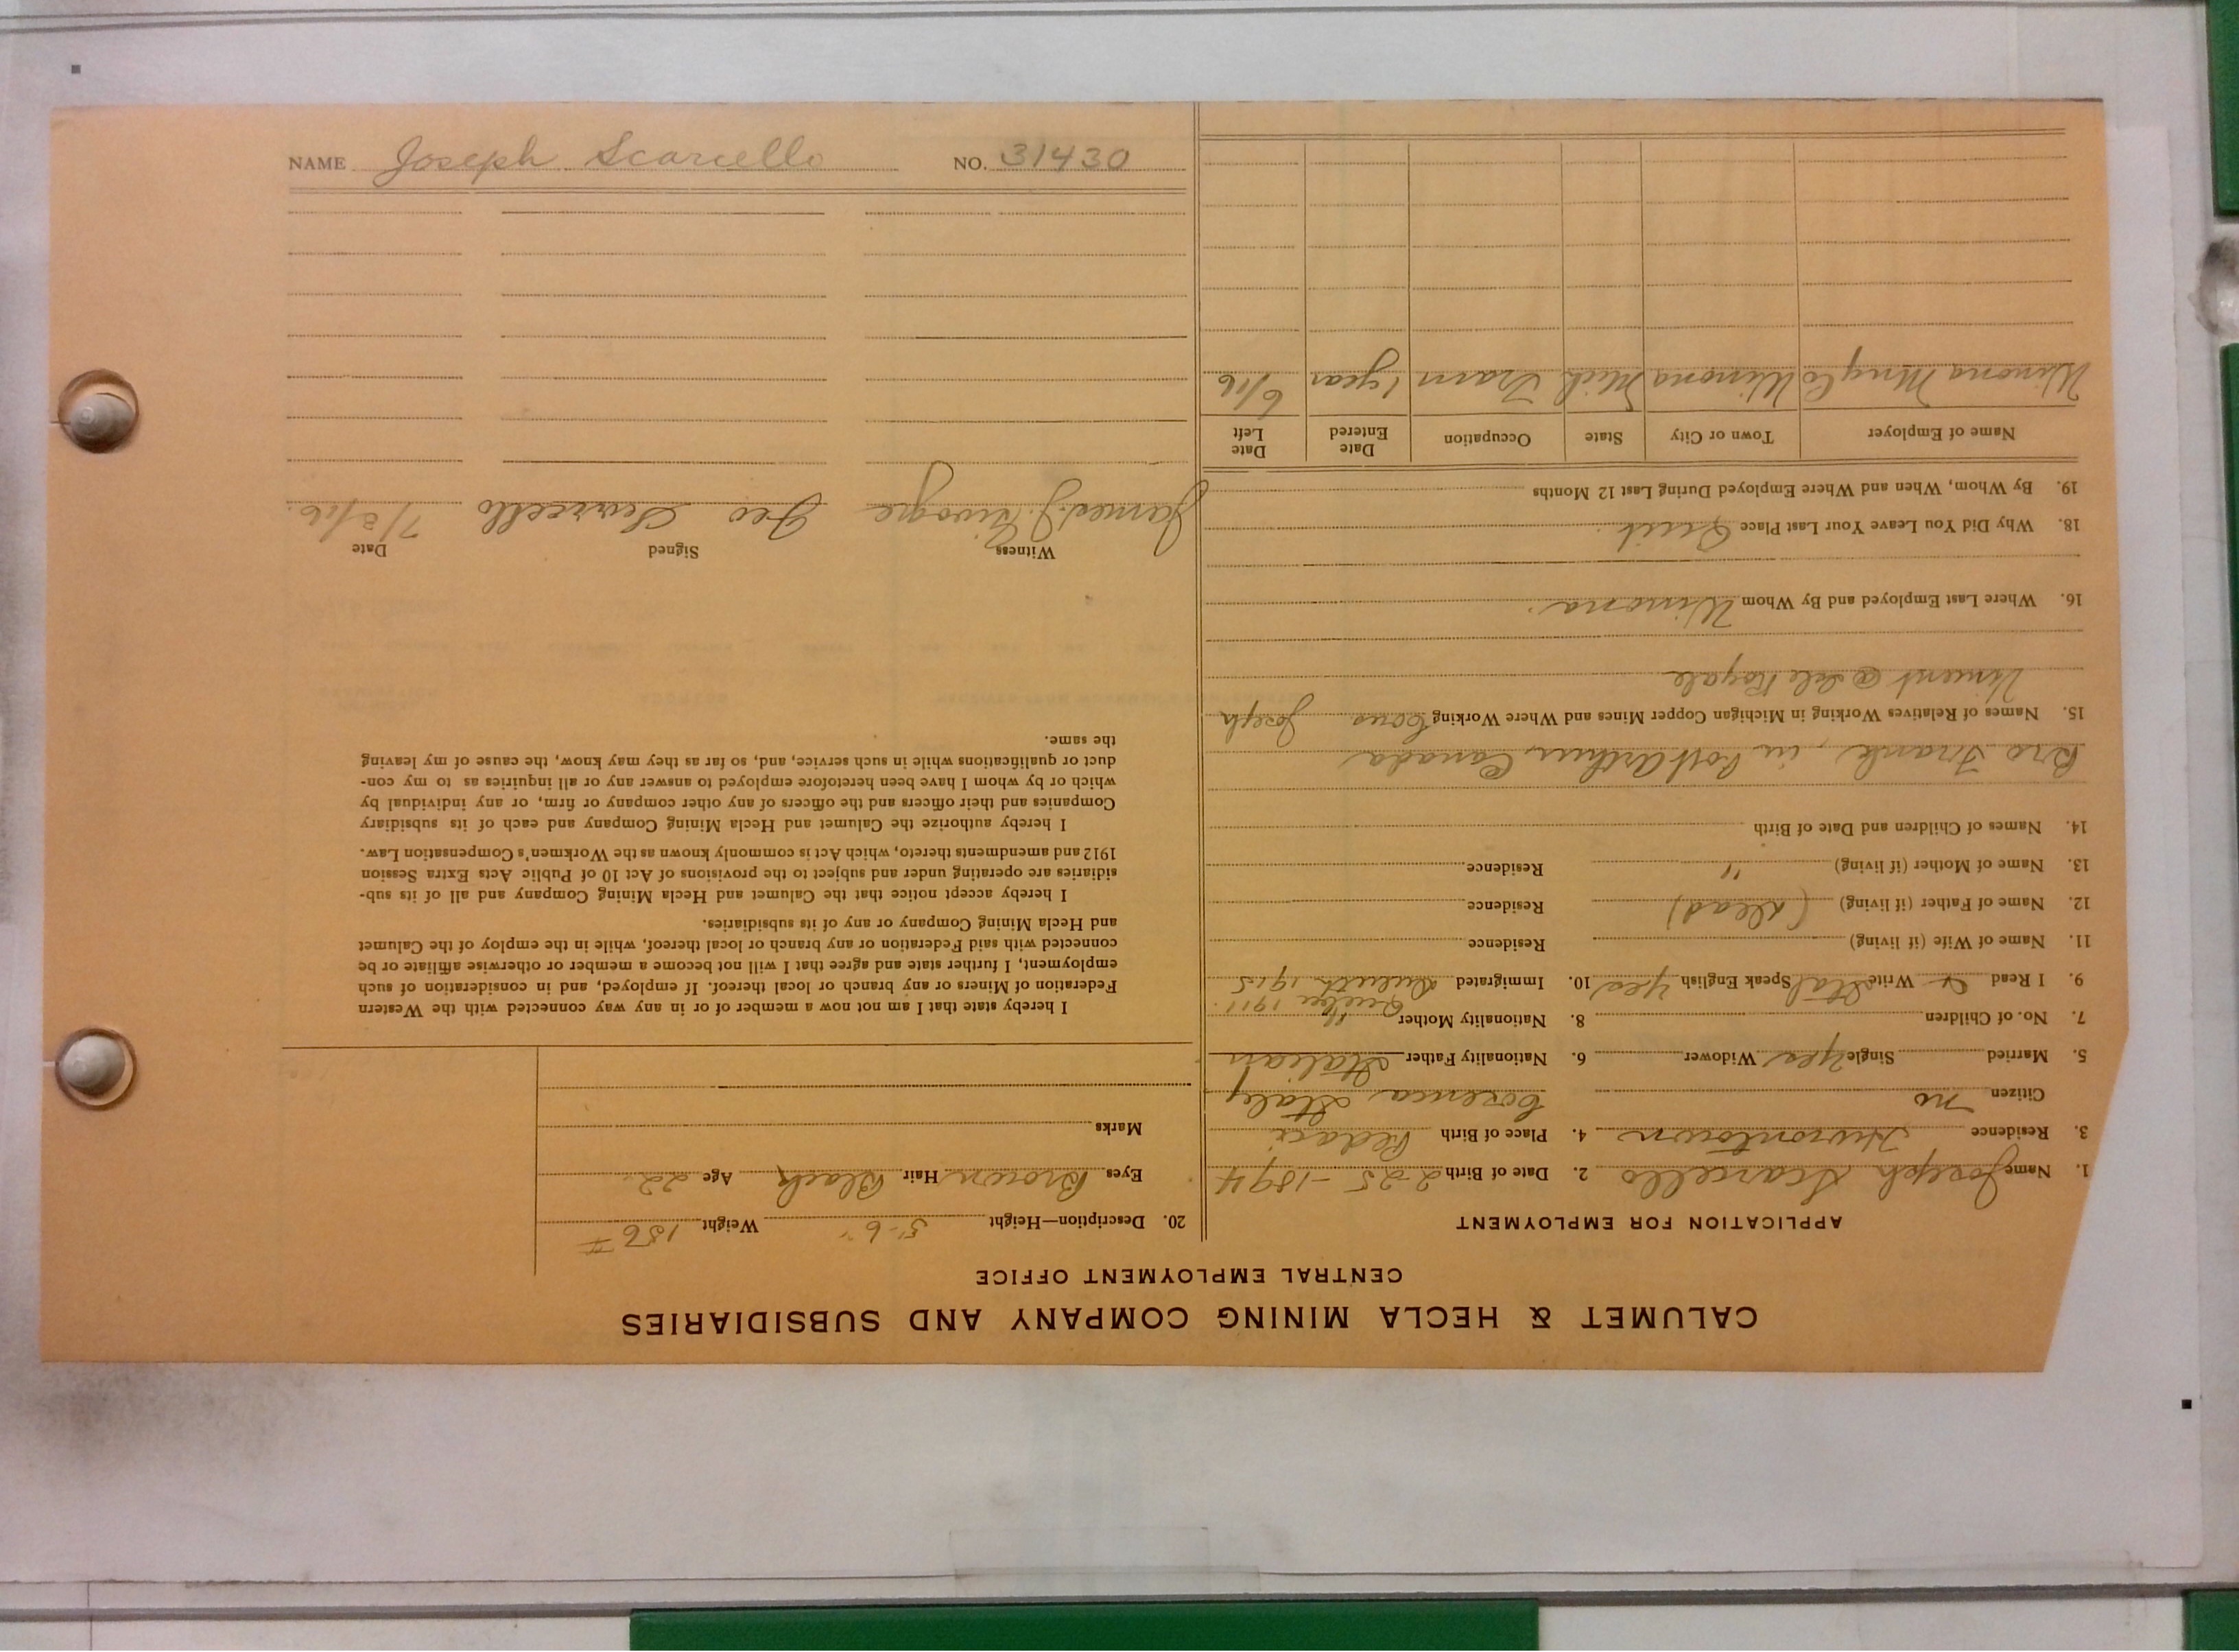 CALUMET & HECLA MINING COMPANY AND SUBSIDIARIES
CENTRAL EMPLOYMENT OFFICE
APPLICATION FOR EMPLOYMENT
1. Name Joseph Scarcello 2. Date of Birth 2-25-1894
3. Residence Hurontown 4. Place of Birth Pedaci
Citizen no Cosenca Italy
5. Married Single yes Widower 6. Nationality Father Italian
7. No. of Children 8. Nationality Mother "
Quebec 1911.
9. I Read & Write Ital Speak English yes 10. Immigrated Duluth 1915
11. Name of Wife (if living) Residence
12. Name of Father (if living) (dead) Residence
13. Name of Mother (if living) " Residence
14. Names of Children and Date of Birth
Bro Frank, in Port Arthur, Canada
15. Names of Relatives Working in Michigan Copper Mines and Where Working Cous Joseph
Vincent @ Isle Royale
16. Where Last Employed and By Whom Winona.
18. Why Did You Leave Your Last Place Quit
19. By Whom, When and Where Employed During Last 12 Months
Name of Employer Town or City State Occupation Date Entered Date Left
Winona Mng Co Winona Mich Tram 1 year 6/16
20. Description—Height 5'-6" Weight 156 #
Eyes Brown Hair Black Age 22
Marks
I hereby state that I am not now a member of or in any way connected with the Western
Federation of Miners or any branch or local thereof. If employed, and in consideration of such
employment, I further state and agree that I will not become a member or otherwise affiliate or be
connected with said Federation or any branch or local thereof, while in the employ of the Calumet
and Hecla Mining Company or any of its subsidiaries.
I hereby accept notice that the Calumet and Hecla Mining Company and all of its sub-
sidiaries are operating under and subject to the provisions of Act 10 of Public Acts Extra Session
1912 and amendments thereto, which Act is commonly known as the Workmen's Compensation Law.
I hereby authorize the Calumet and Hecla Mining Company and each of its subsidiary
Companies and their officers and the officers of any other company or firm, or any individual by
which or by whom I have been heretofore employed to answer any or all inquiries as to my con-
duct or qualifications while in such service, and, so far as they may know, the cause of my leaving
the same.
Witness Signed Date
James J. Geo Scarcello 7/8/16.
NAME Joseph Scarcello NO. 31430